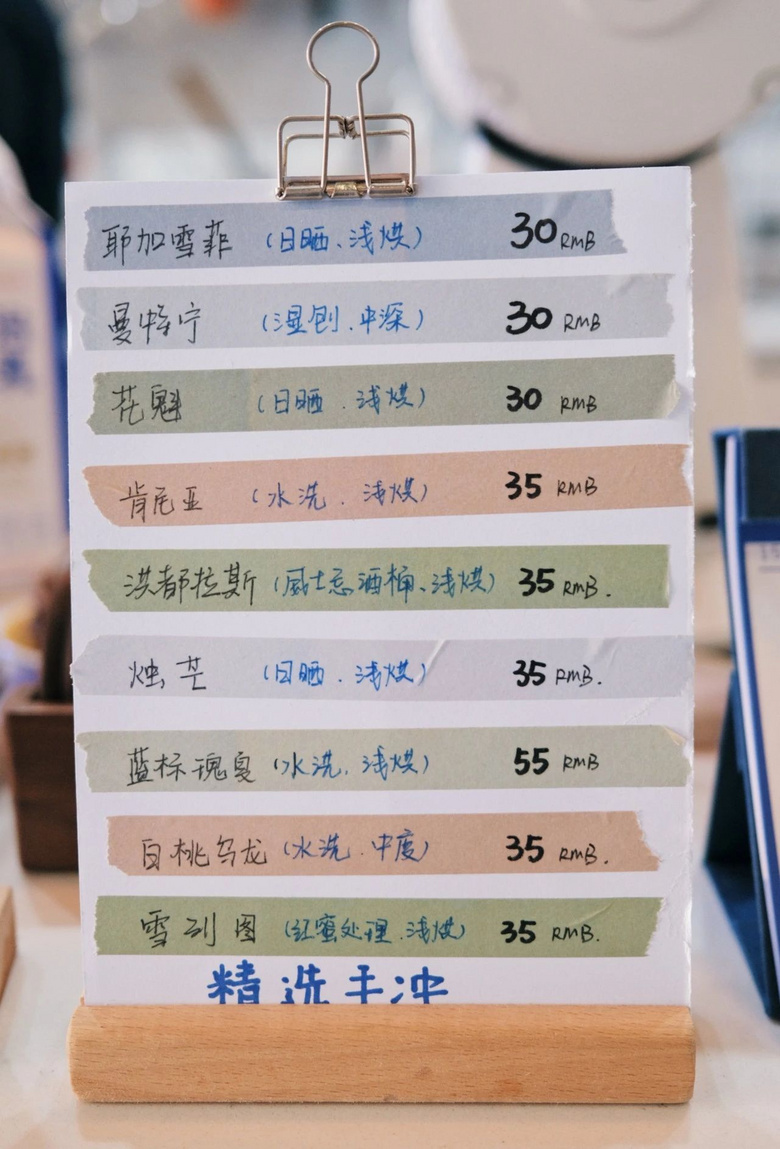 耶加雪菲 (日晒、浅烘) 30 RMB
曼特宁 (湿刨.中深) 30 RMB
花魁 (日晒.浅烘) 30 RMB
肯尼亚 (水洗.浅烘) 35 RMB
洪都拉斯 (威士忌酒桶、浅烘) 35 RMB.
烛芒 (日晒.浅烘) 35 RMB.
蓝标瑰夏 (水洗.浅烘) 55 RMB
白桃乌龙 (水洗.中度) 35 RMB.
雪列图 (红蜜处理.浅烘) 35 RMB.
精选手冲